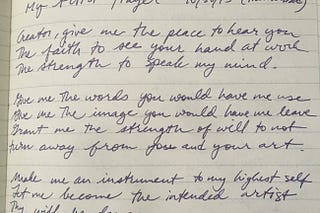 My Artist Prayer 10/29/15
Creator, give me the peace to hear you
The faith to see your hand at work
The strength to speak my mind.
Give me the words you would have me use
Give me the image you would have me leave
Grant me the strength of will to not
turn away from you and your art.
Make me an instrument to my highest self
Let me become the intended artist
Thy will be